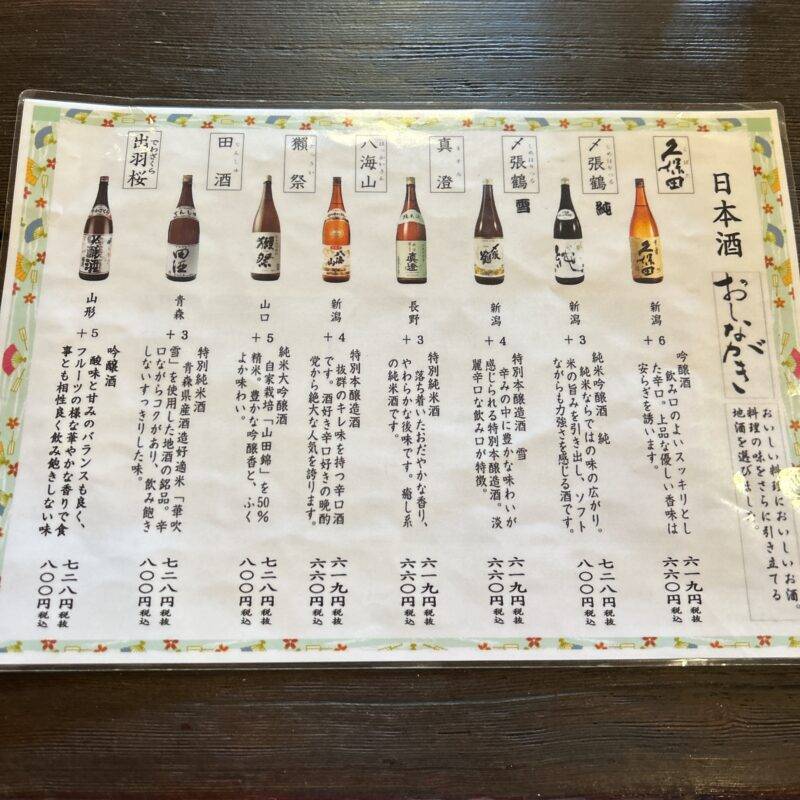 日本酒
おしながき
おいしい料理においしいお酒。
料理の味をさらに引き立てる
地酒を選びました。
久保田
くぼた
久保田
新潟
+6
吟醸酒
飲み口のよいスッキリとし
た辛口。上品な優しい香味は
安らぎを誘います。
六一九円税抜
六六〇円税込
〆張鶴 純
しめはりつる
純
新潟
+3
純米吟醸酒 純
純米ならではの味の広がり。
米の旨みを引き出し、ソフト
ながらも力強さを感じる酒です。
七二八円税抜
八〇〇円税込
〆張鶴 雪
しめはりつる
〆張鶴
新潟
+4
特別本醸造酒 雪
辛みの中に豊かな味わいが
感じられる特別本醸造酒。淡
麗辛口な飲み口が特徴。
六一九円税抜
六六〇円税込
真澄
ますみ
真澄
長野
+3
特別純米酒
落ち着いたおだやかな香り、
やわらかな後味です。癒し系
の純米酒です。
六一九円税抜
六六〇円税込
八海山
はっかいさん
八海山
新潟
+4
特別本醸造酒
抜群のキレ味を持つ辛口酒
です。酒好き辛口好きの晩酌
党から絶大な人気を誇ります。
六一九円税抜
六六〇円税込
獺祭
だっさい
獺祭
山口
+5
純米大吟醸酒
自家栽培「山田錦」を50%
精米。豊かな吟醸香と、ふく
よか味わい。
七二八円税抜
八〇〇円税込
田酒
でんしゅ
でんしゅ
田酒
青森
+3
特別純米酒
青森県産酒造好適米「華吹
雪」を使用した地酒の銘品。辛
口ながらコクがあり、飲み飽き
しないすっきりした味。
七二八円税抜
八〇〇円税込
出羽桜
でわざくら
吟醸酒
山形
+5
吟醸酒
酸味と甘みのバランスも良く、
フルーツの様な華やかな香りで食
事とも相性良く飲み飽きしない味
七二八円税抜
八〇〇円税込